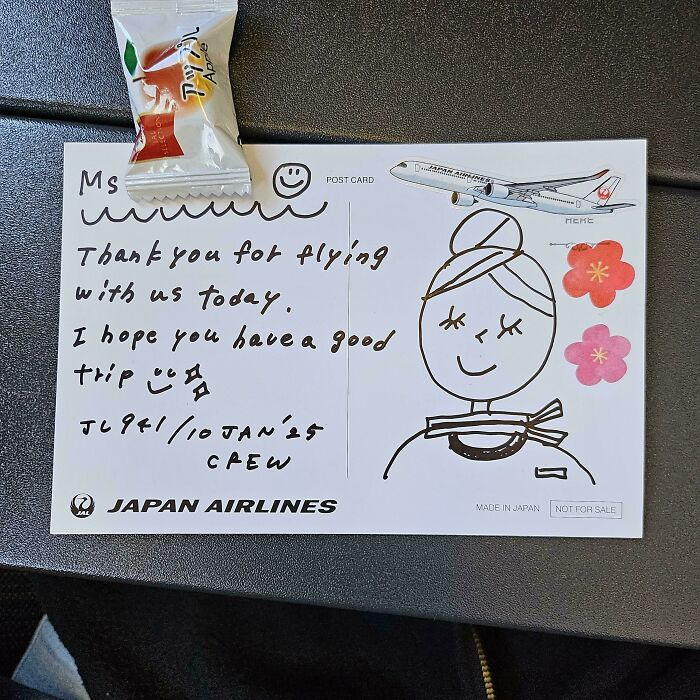 アップル
Apple
Ms
POST CARD
JAPAN AIRLINES
HERE
Thank you for flying
with us today.
I hope you have a good
trip
JL941/10 JAN'25
CREW
JAL
JAPAN AIRLINES
MADE IN JAPAN
NOT FOR SALE